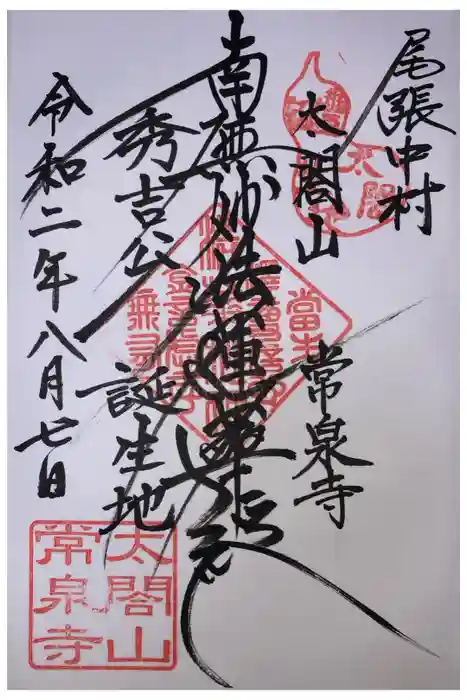 尾張中村
太閤山
常泉寺
南無妙法蓮華経
秀吉公
誕生地
令和二年八月七日
太閤山
常泉寺